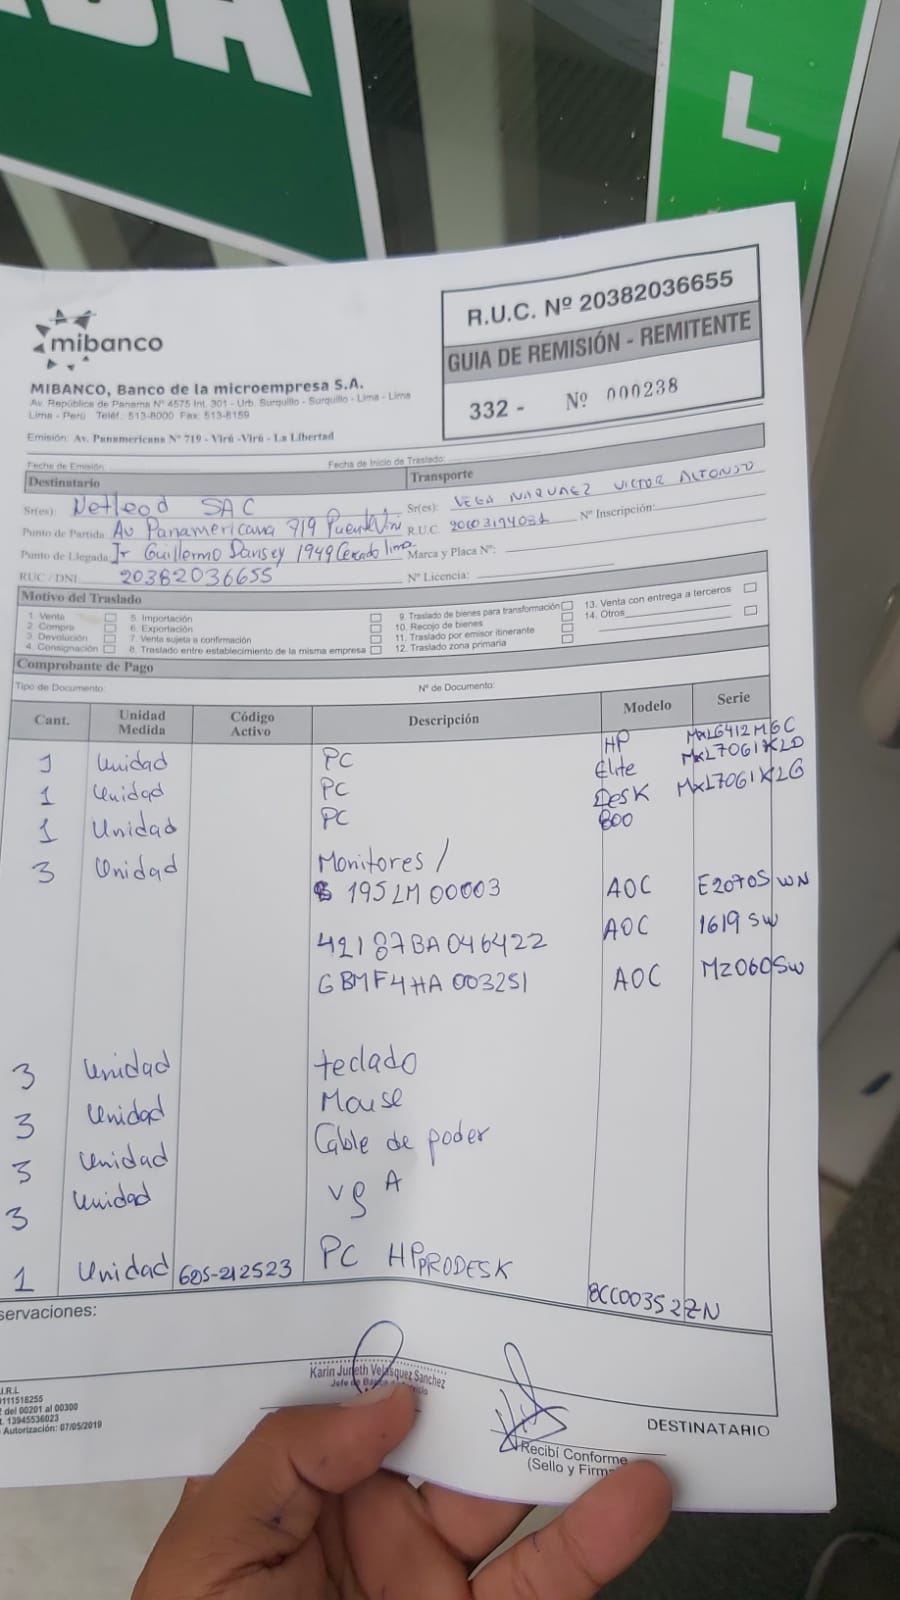 L
mibanco
MIBANCO, Banco de la microempresa S.A.
Av. República de Panama N° 4575 Int. 301 - Urb. Surquillo - Surquillo - Lima - Lima
Lima - Perú Teléf. 513-8000 Fax: 513-8159
Emisión: Av. Panamericana N° 719 - Virú -Virú - La Libertad
R.U.C. Nº 20382036655
GUIA DE REMISIÓN - REMITENTE
332 - Nº 000238
Fecha de Emisión: Fecha de Inicio de Traslado:
Destinatario Transporte
Sr(es): Netleod SAC Sr(es): VEGA NARQUEZ VICTOR ALFONSO
Punto de Partida: Av Panamericana 719 Puente Viru R.U.C. Nº Inscripción:
Punto de Llegada: Jr Guillermo Dansey 1949 Cercado lima Marca y Placa Nº:
RUC / DNI 20382036655 Nº Licencia:
Motivo del Traslado
1. Venta 5. Importación 9. Traslado de bienes para transformación 13. Venta con entrega a terceros
2. Compra 6. Exportación 10. Recojo de bienes 14. Otros
3. Devolución 7. Venta sujeta a confirmación 11. Traslado por emisor itinerante
4. Consignación 8. Traslado entre establecimiento de la misma empresa 12. Traslado zona primaria
Comprobante de Pago
Tipo de Documento: Nº de Documento:
Cant. Unidad Medida Código Activo Descripción Modelo Serie
1 Unidad PC HP MXL6412MGC
1 Unidad PC Elite MXL7061XLD
1 Unidad PC Desk MXL7061XLG
800
3 Unidad Monitores /
195LM00003 AOC E2070SWN
42187BA046422 AOC 1619SW
GBMF4HA003251 AOC M2060SW
3 Unidad teclado
3 Unidad Mouse
3 Unidad Cable de poder
3 Unidad vgA
1 Unidad 605-212523 PC HP PRODESK 8CC00352ZN
servaciones:
Karin Juneth Velasquez Sanchez
Jefe de
.I.R.L
0111518255
del 00201 al 00300
13945536023
Autorización: 07/05/2019
Recibí Conforme
(Sello y Firm
DESTINATARIO